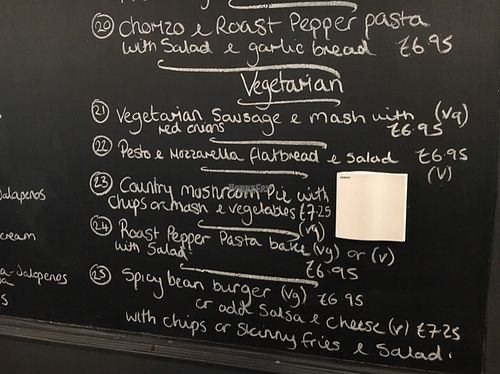 (20) Chorizo e Roast Pepper pasta
with Salad e garlic bread £6.95
Vegetarian
(21) Vegetarian Sausage e mash with (vg)
red onions £6.95
(22) Pesto e Mozzarella flatbread e salad £6.95
(v)
(23) Country mushroom Pie with
chips or mash e vegetables £7.25
(vg)
(24) Roast Pepper Pasta bake (vg) or (v)
with Salad. £6.95
(23) Spicy bean burger (vg) £6.95
or add Salsa e cheese (v) £7.25
with chips or skinny fries e Salad.
Jalapenos
cream
Jalapenos